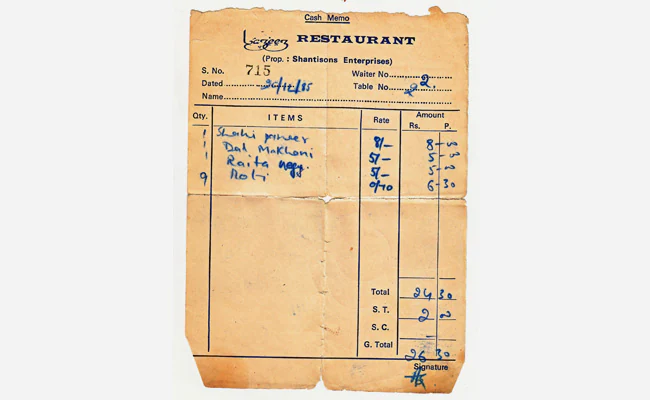 Cash Memo
RESTAURANT
(Prop. : Shantisons Enterprises)
S. No. 715 Waiter No. 2.
Dated 20/12/85 Table No. 2
Name
Qty. ITEMS Rate Amount
Rs. P.
1 Shahi paneer 8/- 8-00
1 Dal Makhani 5/- 5-00
1 Raita 5/- 5-00
9 Roti 0/70 6-30
Total 24 30
S. T. 2 00
S. C. -
G. Total 26 30
Signature